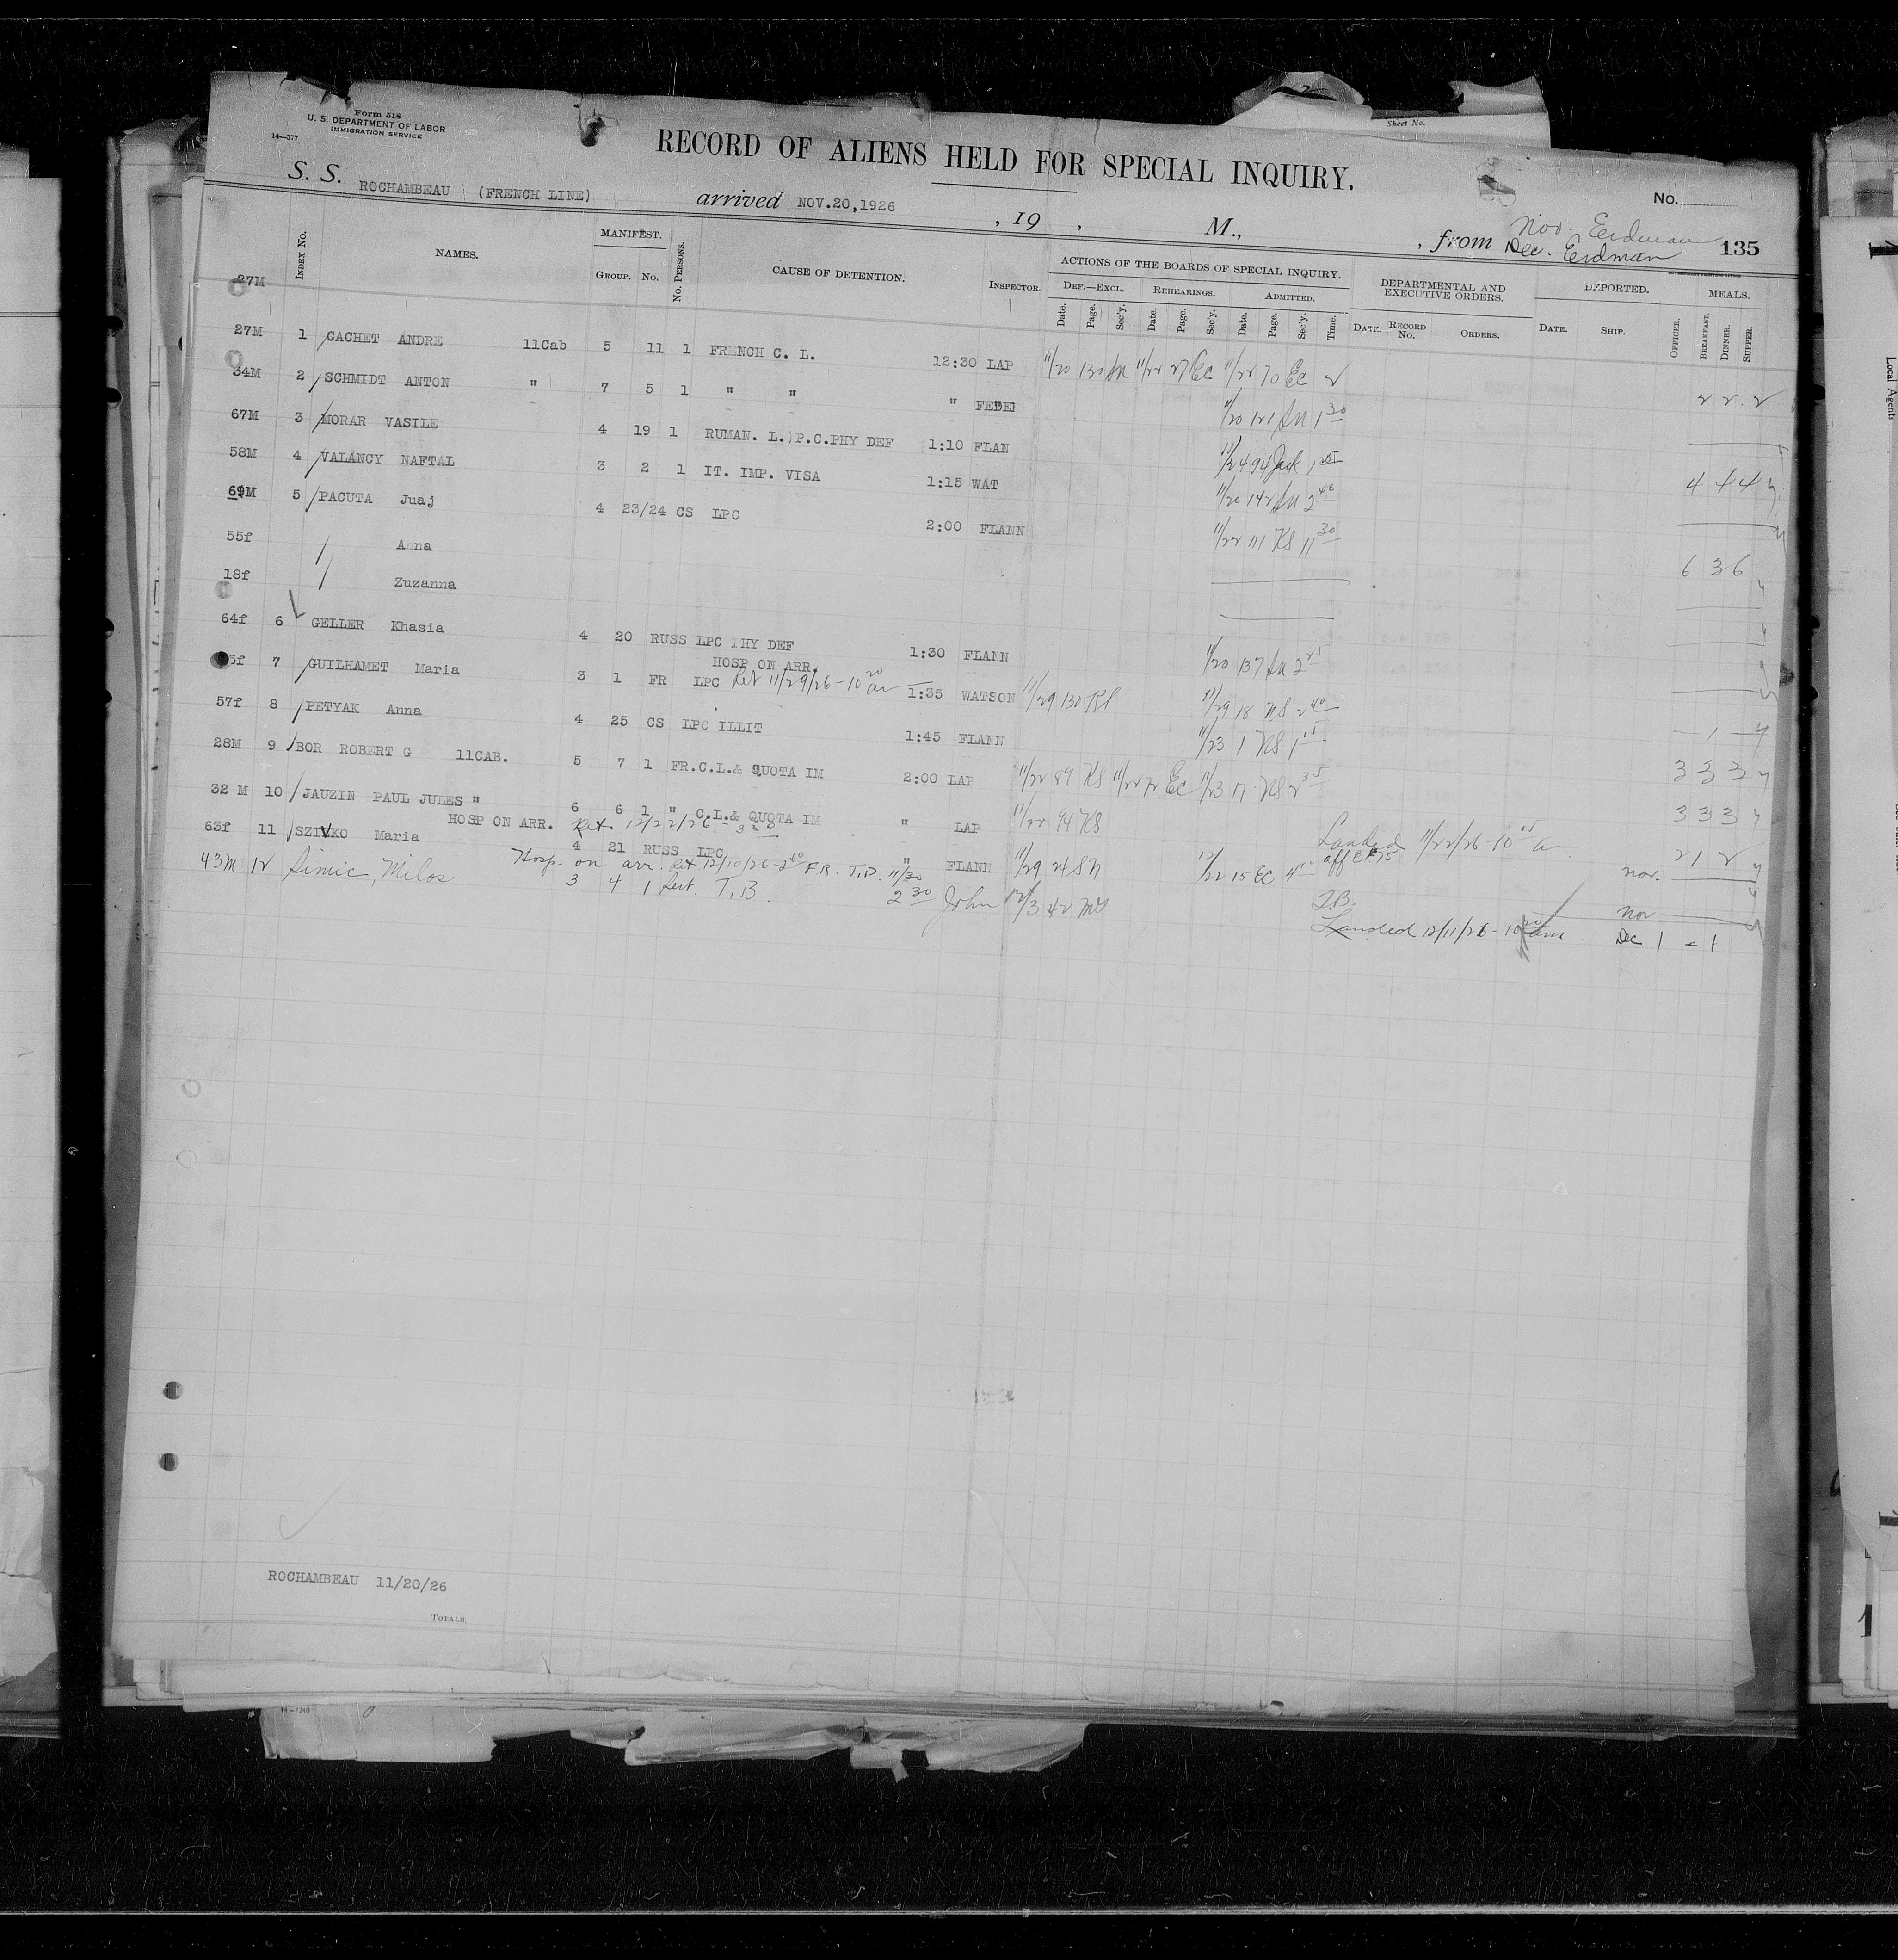 Form 518
U. S. DEPARTMENT OF LABOR
IMMIGRATION SERVICE
14—377
Sheet No.
RECORD OF ALIENS HELD FOR SPECIAL INQUIRY.
No.
S. S. ROCHAMBEAU (FRENCH LINE) arrived NOV.20,1926 , 19 , M., , from Nov. Eerdman
Dec. Erdman 135
INDEX No. NAMES. MANIFEST. GROUP. No. No. PERSONS. CAUSE OF DETENTION. INSPECTOR. ACTIONS OF THE BOARDS OF SPECIAL INQUIRY. DEPARTMENTAL AND EXECUTIVE ORDERS. DEPORTED. MEALS.
DEF.—EXCL. REHEARINGS. ADMITTED.
Date. Page. Sec'y. Date. Page. Sec'y. Date. Page. Sec'y. Time. DATE. RECORD No. ORDERS. DATE. SHIP. OFFICER. BREAKFAST. DINNER. SUPPER.
27M
27M 1 CACHET ANDRE 11Cab 5 11 1 FRENCH C. L. 12:30 LAP 11/20 130 11/22 27 EC 11/22 70 EC 2 2 2
34M 2 SCHMIDT ANTON " 7 5 1 " " " 11/20 121 1 30
67M 3 MORAR VASILE 4 19 1 RUMAN. L.P.C.PHY DEF 1:10 FLAN 11/24 94 Jack
58M 4 VALANCY NAFTAL 3 2 1 IT. IMP. VISA 1:15 WAT 11/20 142 2 40
69M 5 PACUTA Juaj 4 23/24 CS LPC 2:00 FLANN 11/22 111 KS 11 30
55f Anna 6 3 6
18f Zuzanna
64f 6 GELLER Khasia 4 20 RUSS LPC PHY DEF 1:30 FLANN 11/20 137 2 25
HOSP ON ARR.
5f 7 GUILHAMET Maria 3 1 FR LPC Ret 11/29/26 - 10 20 a 1:35 WATSON 11/29 130 11/29 18 2 40
57f 8 PETYAK Anna 4 25 CS LPC ILLIT 1:45 FLANN 11/23 1 KS 1 15
28M 9 BOR ROBERT G 11CAB. 5 7 1 FR.C.L.& QUOTA IM 2:00 LAP 11/22 89 KS 11/22 72 EC 11/23 17 KS 2 35 3 3 3
32 M 10 JAUZIN PAUL JULES " 6 6 1 " C.L.& QUOTA IM " LAP 11/22 94 KS Landed 11/22/26 - 10 15 a 3 3 3
HOSP ON ARR. Ret 12/22/26 - 3 30
63f 11 SZIVKO Maria 4 21 RUSS LPC " FLANN 11/29 24 SN 12/22 15 EC 4 Nov. 2 1 2
Hosp. on arr. Ret 12/10/26 - 2 40
43M 12 Simic, Milos 3 4 1 T.B. 11/30 2 30 John 12/3 42 T.B. Nov
Landed 12/11/26 - 10 20 am Dec 1 - 1
ROCHAMBEAU 11/20/26
TOTALS.
14—1240
Local Agent